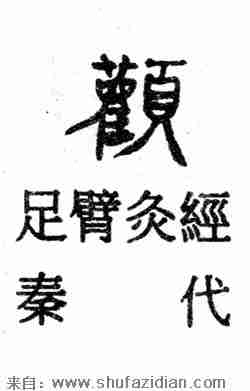 顴
足臂灸經
秦代
来自：www.shufazidian.com